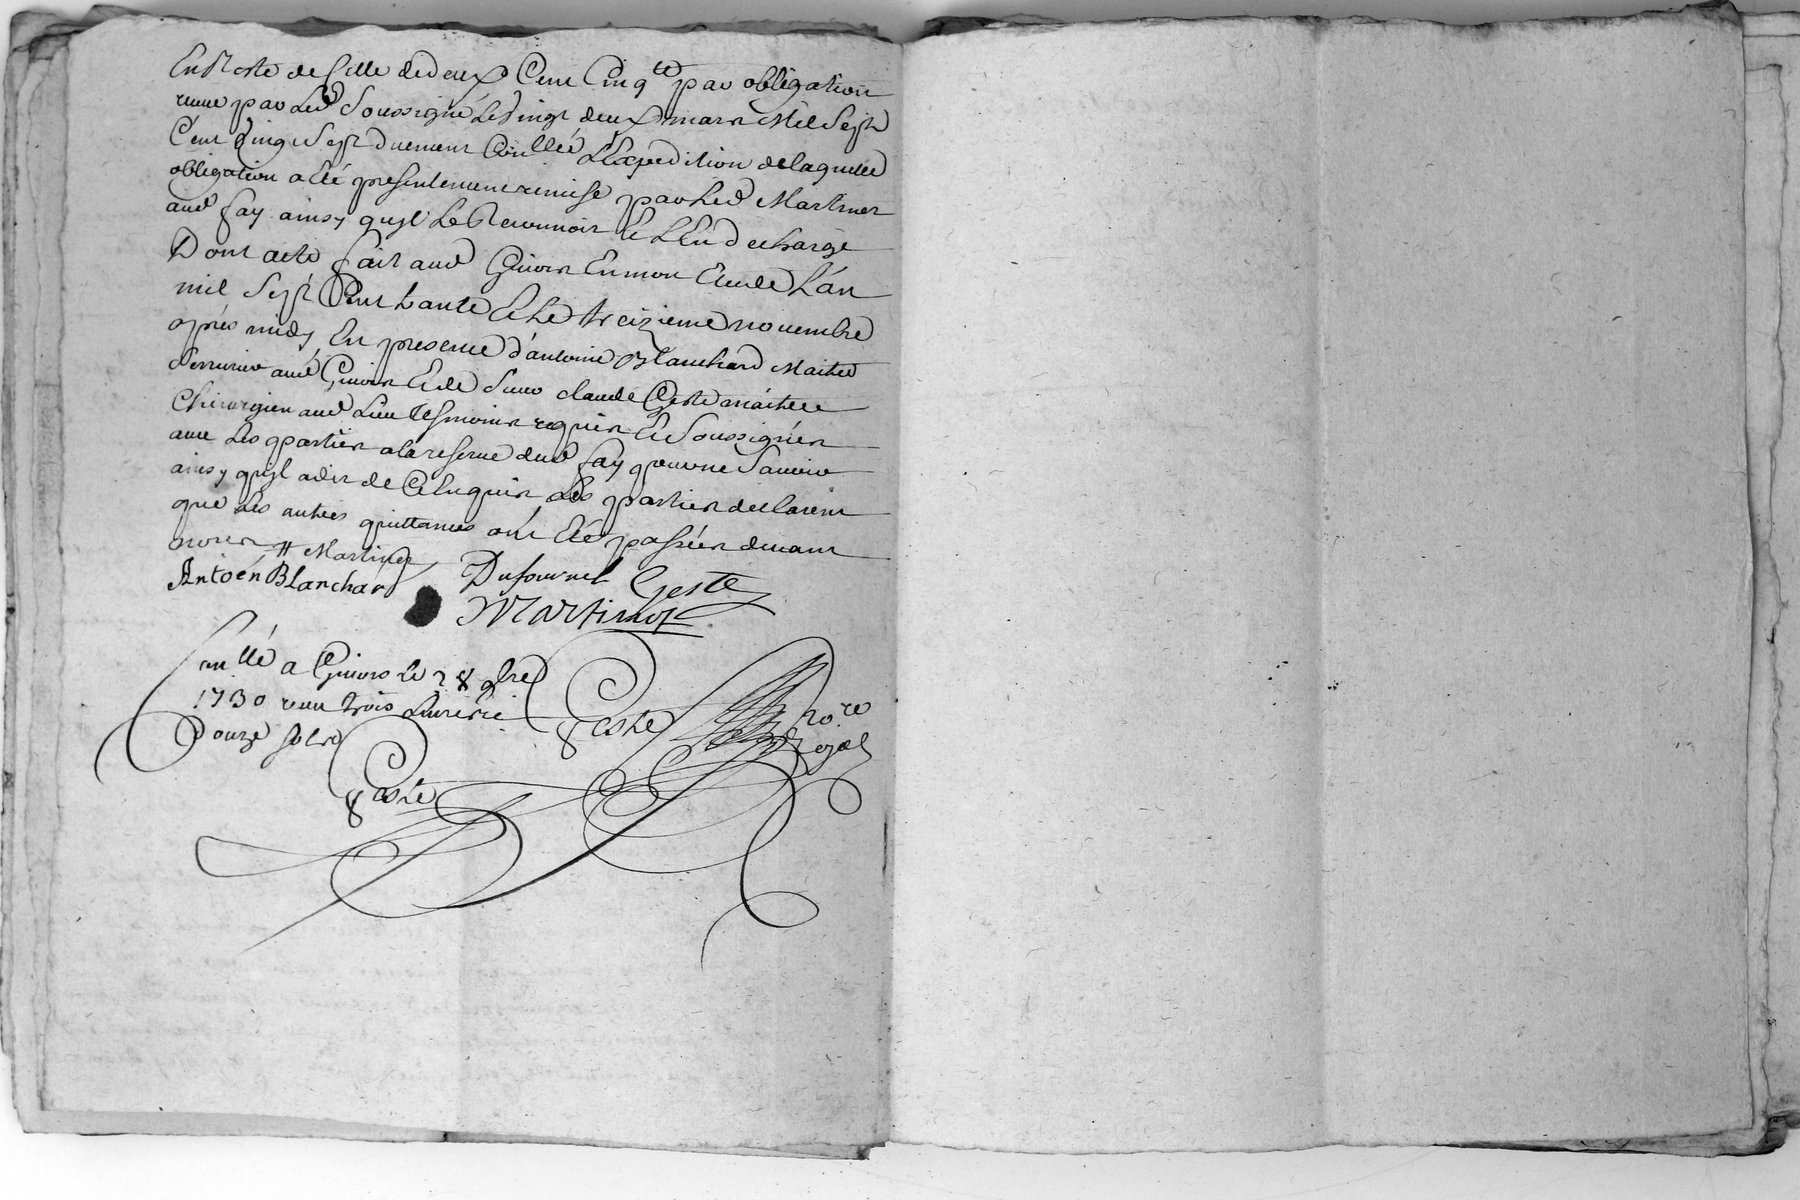 En Reste de Celle de deux Cent Cinq.te par obligation
recue par Led Soussigné Le vingt deux mars Mil Sept
Cent vingt Sept duement Con.llée L'Expedition de laquelle
obligation a Eté presentement remise par Led Martinet
aud fay ainsy qu'yl Le Reconnoit Et L'En decharge
Dont acte fait aud Givors En mon Etude L'an
mil Sept Cent trante Et Le treizieme novembre
après midy En presence d'antoine Blanchard Maitre
Serrurier aud Givors Et de Sieur claude Geste maitre
Chirurgien aud Lieu tesmoins requis Et Soussignés
avec Les parties a la reserve dud fay pour ne Sauoir
ainsy qu'yl a dit de Ce Enquis Les parties declarent
que Les autres quittances ont Eté passées devant
moi H Martinet
Antoén Blanchard Dufournel Geste
Martinot
Con.llé a Givors Le 28 9bre
1730 reçu trois Livres
Douze sols
Coste
Coste No.re
Royal